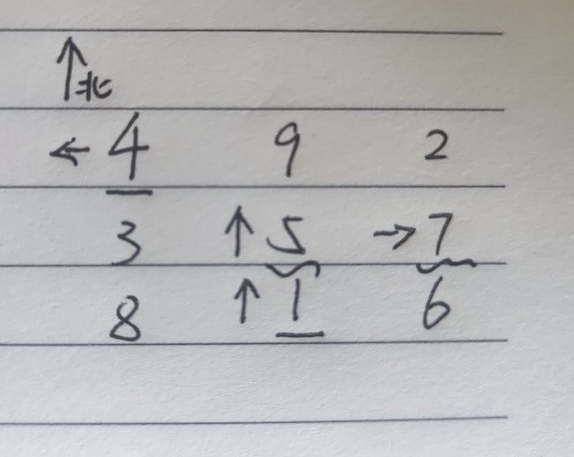 ↑北
← 4 9 2
3 ↑ 5 → 7
8 ↑ 1 6